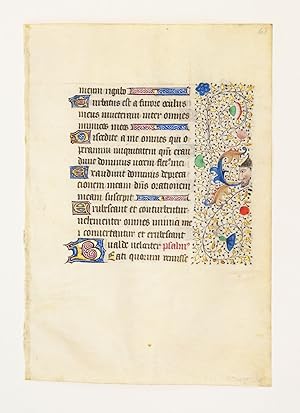 meum rigabo
Turbatus est a furore oculus
meus inveteravi inter omnes
inimicos meos
Discedite a me omnes qui o
peramini iniquitatem qm̄ exau
divit dominus vocem fletus mei
Exaudivit dominus depreca
tionem meam dn̄s orationem
meam suscepit
Erubescant et conturbentur
vehementer omnes inimici me
i convertantur et erubescant
valde velociter psalm̄
Beati quorum remisse